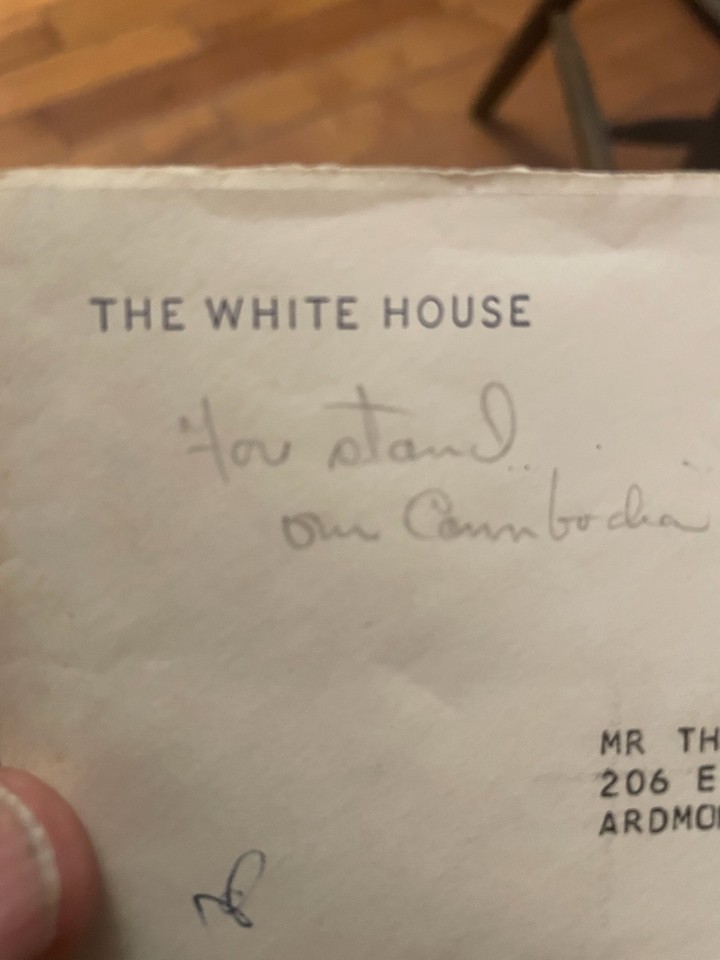 THE WHITE HOUSE
"You stand
on Cambodia"
MR TH
206 E
ARDMO